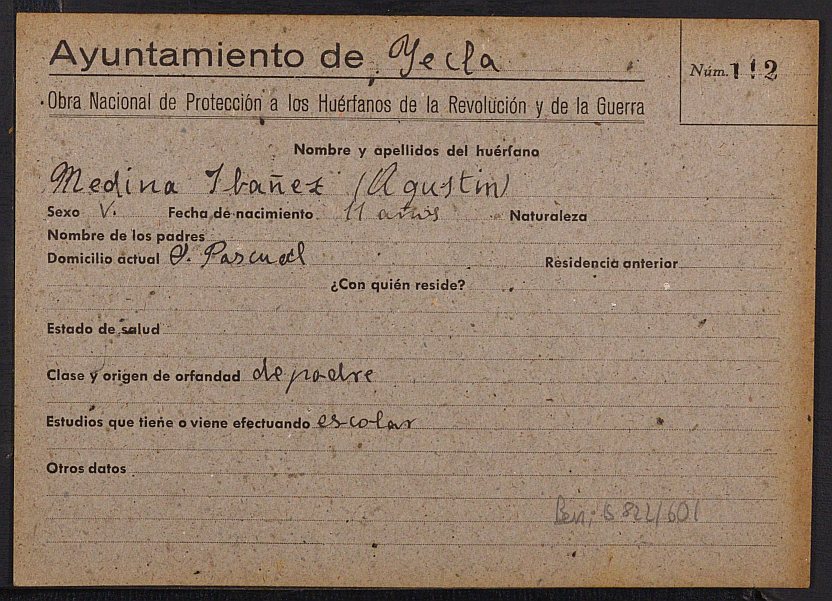 Ayuntamiento de Yecla
Núm. 112
Obra Nacional de Protección a los Huérfanos de la Revolución y de la Guerra
Nombre y apellidos del huérfano
Medina Ibañez (Agustin)
Sexo V. Fecha de nacimiento 11 años Naturaleza
Nombre de los padres
Domicilio actual S. Pascual Residencia anterior
¿Con quién reside?
Estado de salud
Clase y origen de orfandad de padre
Estudios que tiene o viene efectuando escolar
Otros datos
822/601